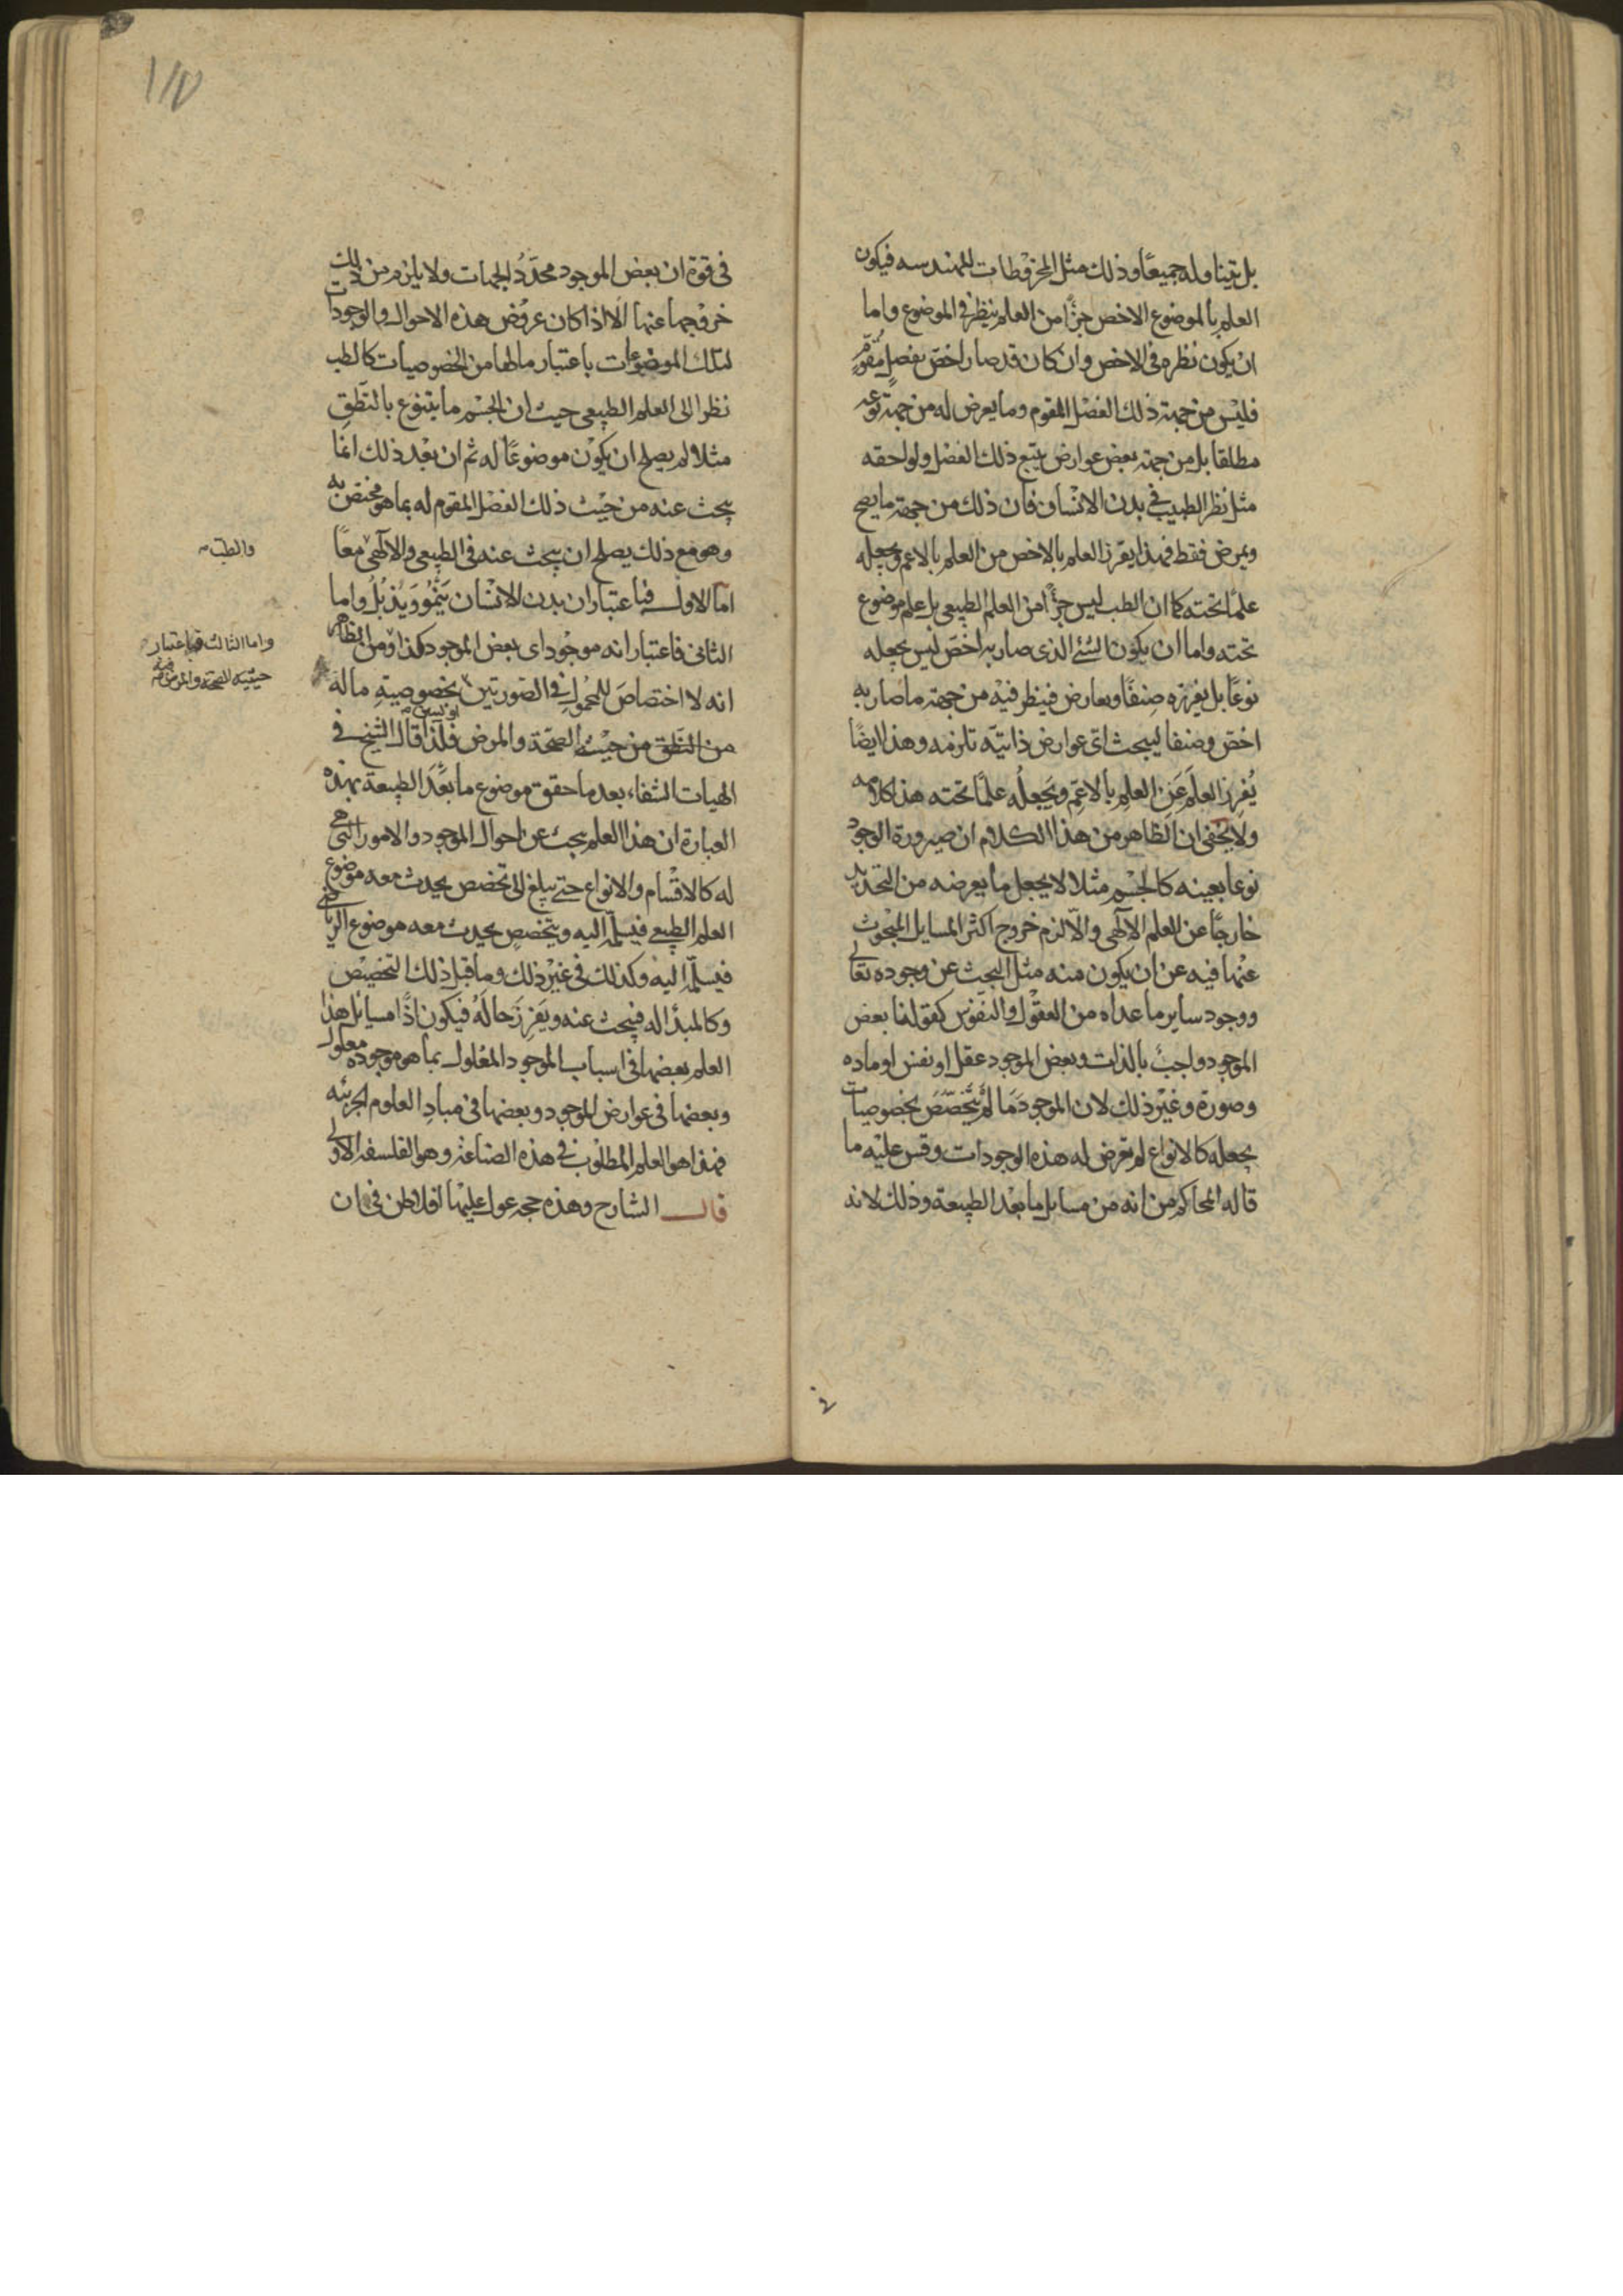 بل يتناوله جميعًا وذلك مثل المخروطات للهندسه فيكون
العلم بالموضوع الاخص جزءًا من العلم ينظر في الموضوع واما
ان يكون نظره في الاخص وان كان قد صار اخصّ بفصلٍ مُقوّمٍ
فليْس من جهة ذلك الفصْل المقوم وما يعرض له من جهةِ نوعه
مطلقا بل من جهة بعض عوارض يتبع ذلك الفصْل ولواحقه
مثل نظر الطبيب في بدن الانْسان فان ذلك من جهة ما يصح
ويمرض فقط فهذا يفرز العلم بالاخص من العلم بالاعم ويجعله
علمًا تحته كما ان الطب ليس جزءًا من العلم الطبيعي بل علم موضوع
تحته واما ان يكون الشئ الذى صار به اخصّ ليْس يجعله
نوعًا بل يفرزه صِنفًا وبعارض فينظر فيْه من جهة ما صار به
اخصّ وصنفا ليبحث اىّ عوارض ذاتيّه تلزمه وهذا ايضًا
يُفرِز العلمَ عَنِ العلمِ بالاعمّ ويَجعلُه علمًا تحته هذا كلامه
ولا يخفى ان الظاهر من هذا الكلام ان صيرورة الوجود
نوعا بعينه كالجسْم مثلا لا يجعل ما يعرضه من التحديد
خارجًا عن العلم الالٓهى والّا لزم خروج اكثر المسايل المبحُوث
عنْها فيه عن ان يكون منه مثل البحث عن وجوده تعالى
ووجود ساير ما عداه من العقُول والنفوْس كقولنا بعض
الموجود واجبٌ بالذات وبعض الموجود عقل او نفس او ماده
وصورة وغيْر ذلك لان الموجودَ مَا لمْ يتَخصّصَ بخصوصيات
يجعله كالانواع لم تعرض له هذه الوجودات وقس عليْه ما
قاله المحاكم من انه من مسايل ما بعْد الطبيعة وذلك لانه
في قوة ان بعض الموجود محدّدُ الجهات ولا يلزم من ذلك
خروْجها عنها الّا اذا كان عروُض هذه الاحوال والوجودات
لتلك الموضوعات باعتبار ما لها من الخصوصيات كالطب
نظرا الى العلم الطبيعي حيث ان الجسْم ما يتنوع بالنّطق
مثلا لم يصلح ان يكوْن موضوعًا له ثم ان بعْد ذلك انما
يبحث عنه من حيْث ذلك الفصْل المقوم له بما هو مختص به
وهو مع ذلك يصلح ان يبحث عنه في الطبيعي والالٓهيّ معًا
والطب
امّا الاول فباعتبار ان بدن الانسْان يَنمُو وَيَذْبُلُ واما
الثانى فاعتبار انه موجُود اى بعض الموجود كذا ومن الظاهر
واما الثالث فباعتبار
حيثية الصحة والمرض
انه لا اختصاصَ للمحُمولِ في الصورتين بخصوصيتهِ ما له
من النُّطق من حيْث الصحّة والمرض فلذا قال الشيخ في
الهيات الشفاء بعد ما حقق موضوع ما بعْدَ الطبيعة بهذه
العبارة ان هذا العلم يبحث عن احوال الموجود والامور التى هى
له كالاقْسام والانواع حتى يبلغ الى تخصص يحدث معه موضوع
العلم الطبيعي فيسلّمه اليه ويتخصصٍ يحدث معه موضوع الرياضى
فيسلّمه اليه وكذلك في غيْر ذلك وما قبل ذلك التخصيْص
وكالمبدأ له فيبحث عنه ويفرز حالهُ فيكون اذًا مسايل هذا
العلم بعضها في اسباب الموجود المعْلول بما هو موجود معلول
وبعضها في عوارض الموجود وبعضها في مبادِ العلوم الجزئيه
فهذا هو العلم المطلوْب في هذه الصناعة وهو الفلسفه الاولى
قال الشارح وهذه حجه عول عليْها افلاطن في ان